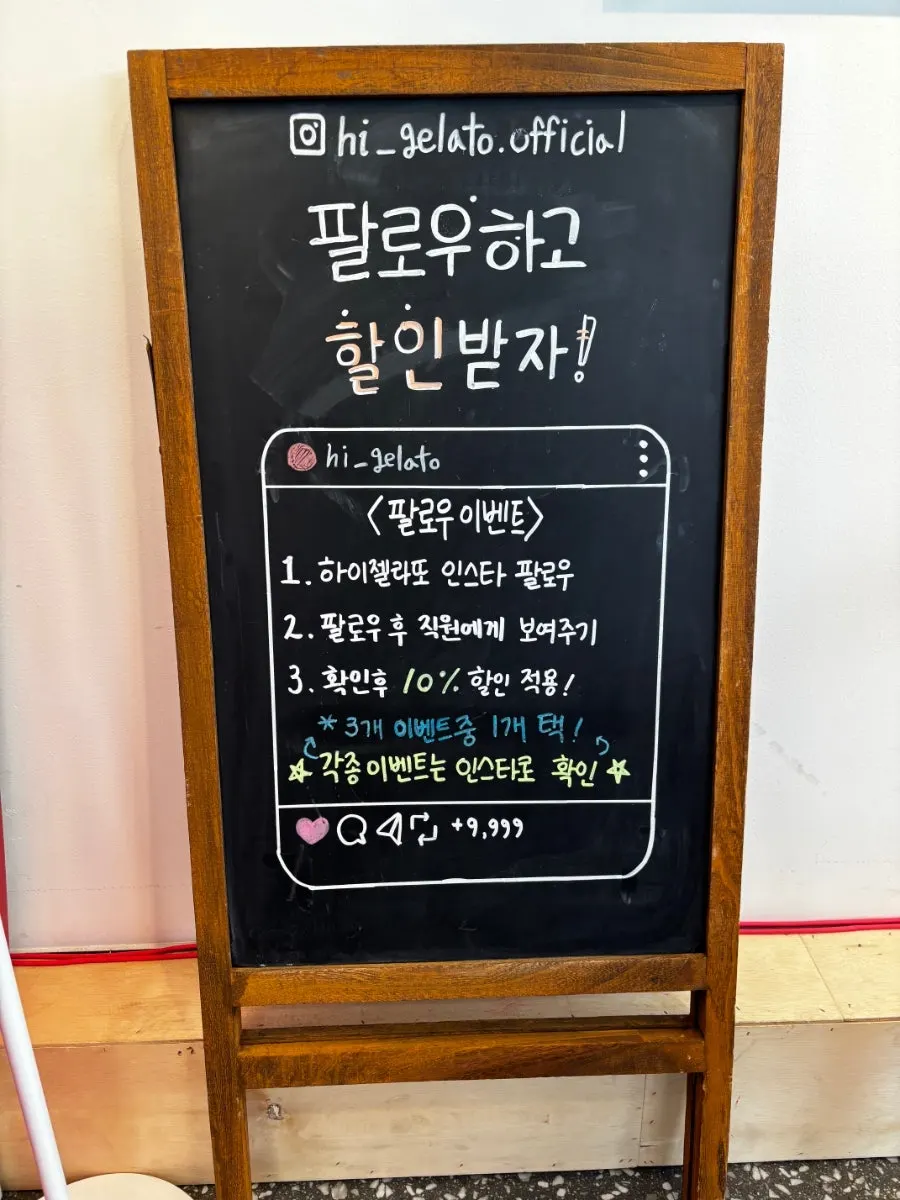 hi_gelato.official
팔로우하고
할인받자!
hi_gelato
<팔로우이벤트>
1. 하이젤라또 인스타 팔로우
2. 팔로우 후 직원에게 보여주기
3. 확인후 10% 할인 적용!
* 3개 이벤트중 1개 택!
☆ 각종이벤트는 인스타로 확인 ☆
+9,999